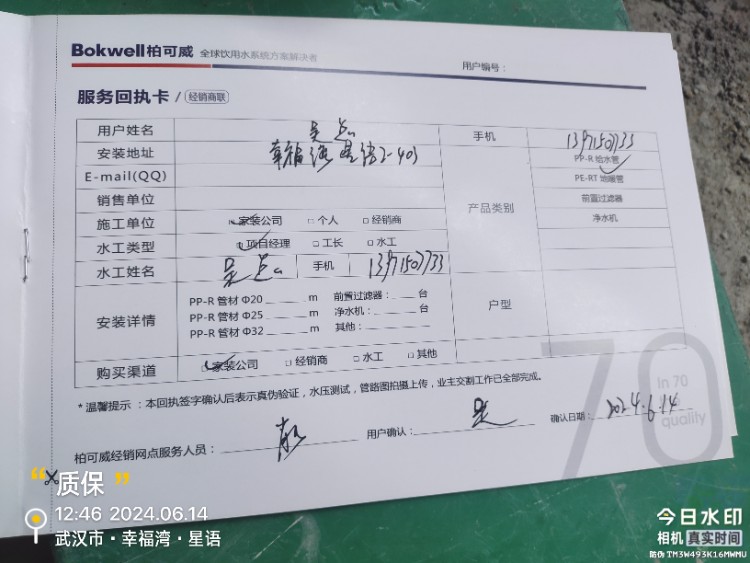 Bokwell柏可威 全球饮用水系统方案解决者
用户编号：
服务回执卡 / 经销商联
用户姓名 吴 手机 13971507733
安装地址 幸福湾星语2-403 PP-R 给水管
E-mail(QQ) PE-RT 地暖管
销售单位 产品类别 前置过滤器
施工单位 家装公司 个人 经销商 净水机
水工类型 项目经理 工长 水工
水工姓名 吴 手机 13971507733
安装详情 户型
PP-R 管材 Φ20 m 前置过滤器： 台
PP-R 管材 Φ25 m 净水机： 台
PP-R 管材 Φ32 m 其他：
购买渠道 家装公司 经销商 水工 其他
70
In 70
quality
*温馨提示：本回执签字确认后表示真伪验证，水压测试，管路图拍摄上传，业主交割工作已全部完成。
柏可威经销网点服务人员： 用户确认： 吴 确认日期： 2024.6.14
“质保”
12:46 2024.06.14
武汉市·幸福湾·星语
今日水印
相机 真实时间
防伪 TM3W493K16MWMU